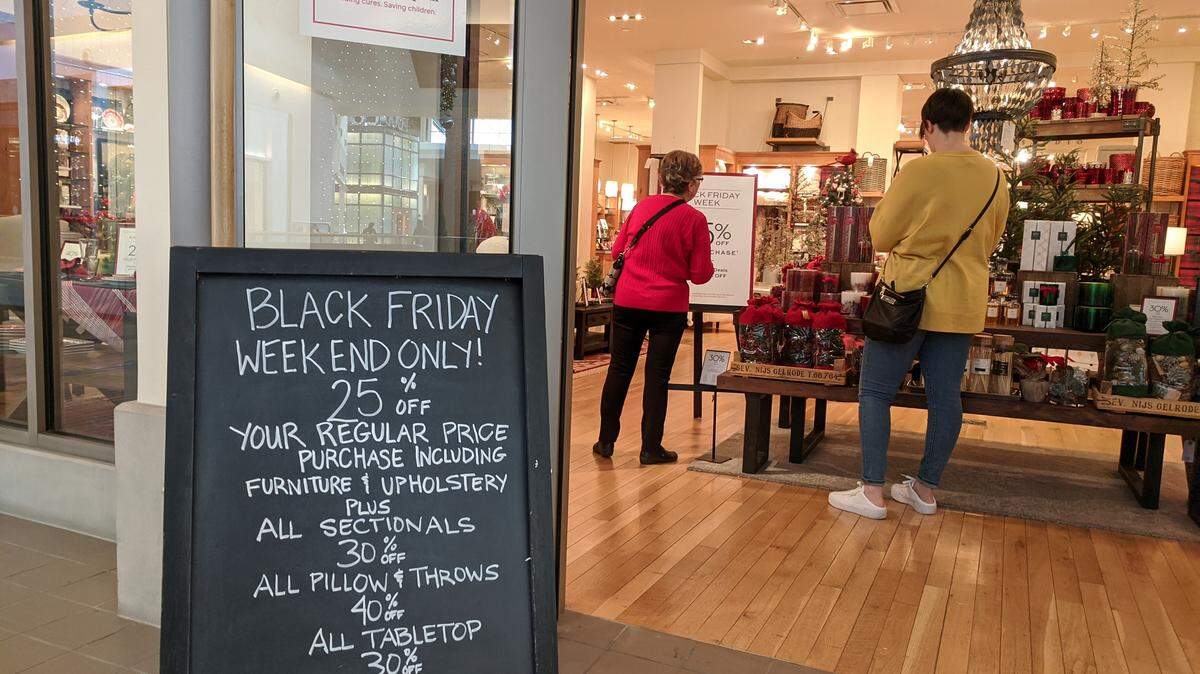 Saving children.
BLACK FRIDAY
WEEKEND ONLY!
25% OFF
YOUR REGULAR PRICE
PURCHASE INCLUDING
FURNITURE & UPHOLSTERY
PLUS
ALL SECTIONALS
30% OFF
ALL PILLOW & THROWS
40% OFF
ALL TABLETOP
30% OFF
FRIDAY
WEEK
5%
OFF
Deals
OFF
30%
30%
SEV. NIJS GELRODE T.66764
SEV. NIJS GELRODE